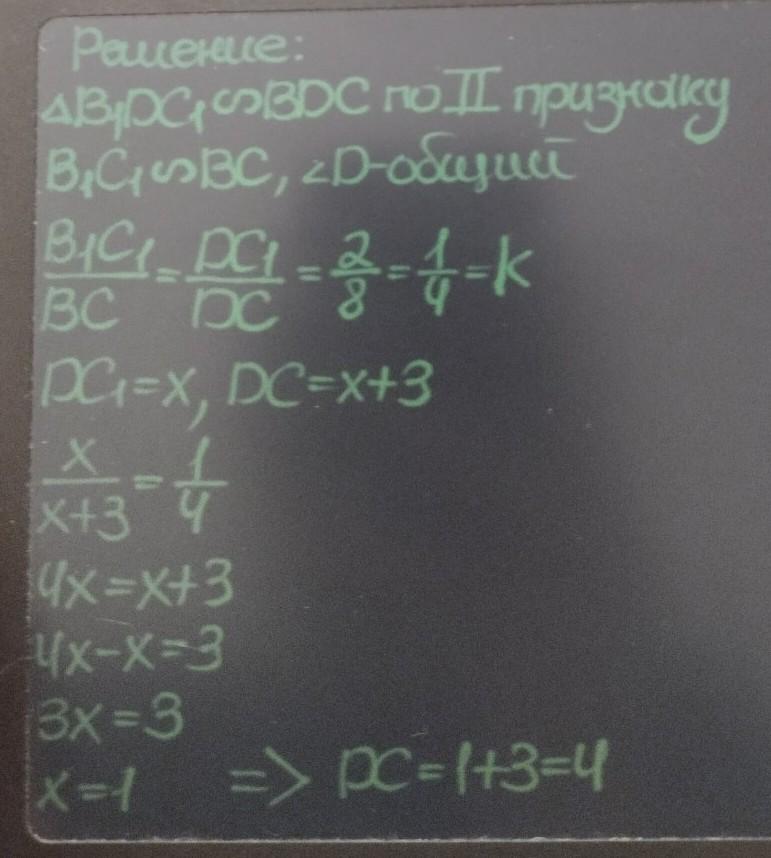 Решение:
△B₁DC₁ ∽ BDC по II признаку
B₁C₁ ∽ BC, ∠D-общий
B₁C₁/BC = DC₁/DC = 2/8 = 1/4 = k
DC₁=x, DC=x+3
x/x+3 = 1/4
4x=x+3
4x-x=3
3x=3
x=1 => DC=1+3=4